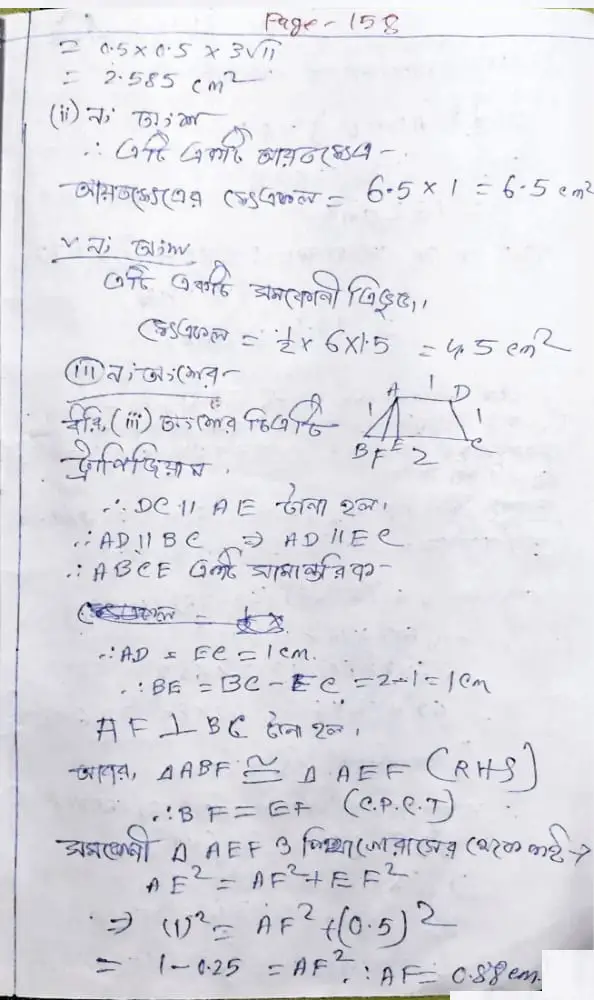 Page-158
= 0.5 × 0.5 × 3√11
= 2.585 cm²
(ii) নং অংশ
∴ এটি একটি আয়তক্ষেত্র -
আয়তক্ষেত্রের ক্ষেত্রফল = 6.5 × 1 = 6.5 cm²
v নং অংশ
এটি একটি সমকোণী ত্রিভুজ,,
ক্ষেত্রফল = ½ × 6 × 1.5 = 4.5 cm²
(iii) নং অংশের -
ধরি, (iii) অংশের চিত্রটি
ট্রাপিজিয়াম .
A 1 D
1 1
B F E 2 C
∴ DC || AE টানা হল।
∴ AD || BC ⇒ AD || EC
∴ ABCE একটি সামান্তরিক -
∴ AD = EC = 1 cm.
∴ BE = BC - EC = 2-1 = 1cm
AF ⊥ BC টানা হল।
আবার, ΔABF ≅ Δ AEF (RHS)
∴ BF = EF (C.P.C.T)
সমকোণী Δ AEF ও পিথাগোরাসের থেকে পাই →
AE² = AF² + EF²
⇒ (1)² = AF² + (0.5)²
= 1 - 0.25 = AF² ∴ AF = 0.88 cm.